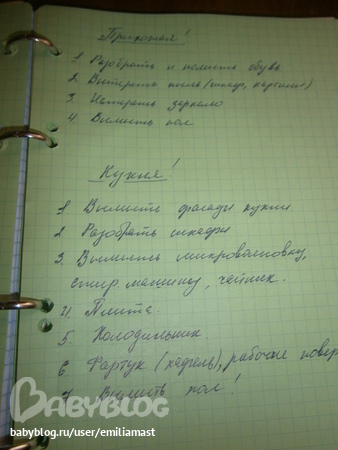 Прихожая!
1. Разобрать и помыть обувь
2. Вытереть пыль (шкаф, картины)
3. Натереть зеркало
4. Вымыть пол
Кухня!
1. Вымыть фасады кухни
2. Разобрать шкафы
3. Вымыть микроволновку,
стир. машину, чайник.
4. Плита.
5. Холодильник.
6 Фартук (кафель), рабочие повер
7 Вымыть пол!
BABYBLOG
babyblog.ru/user/emiliamast